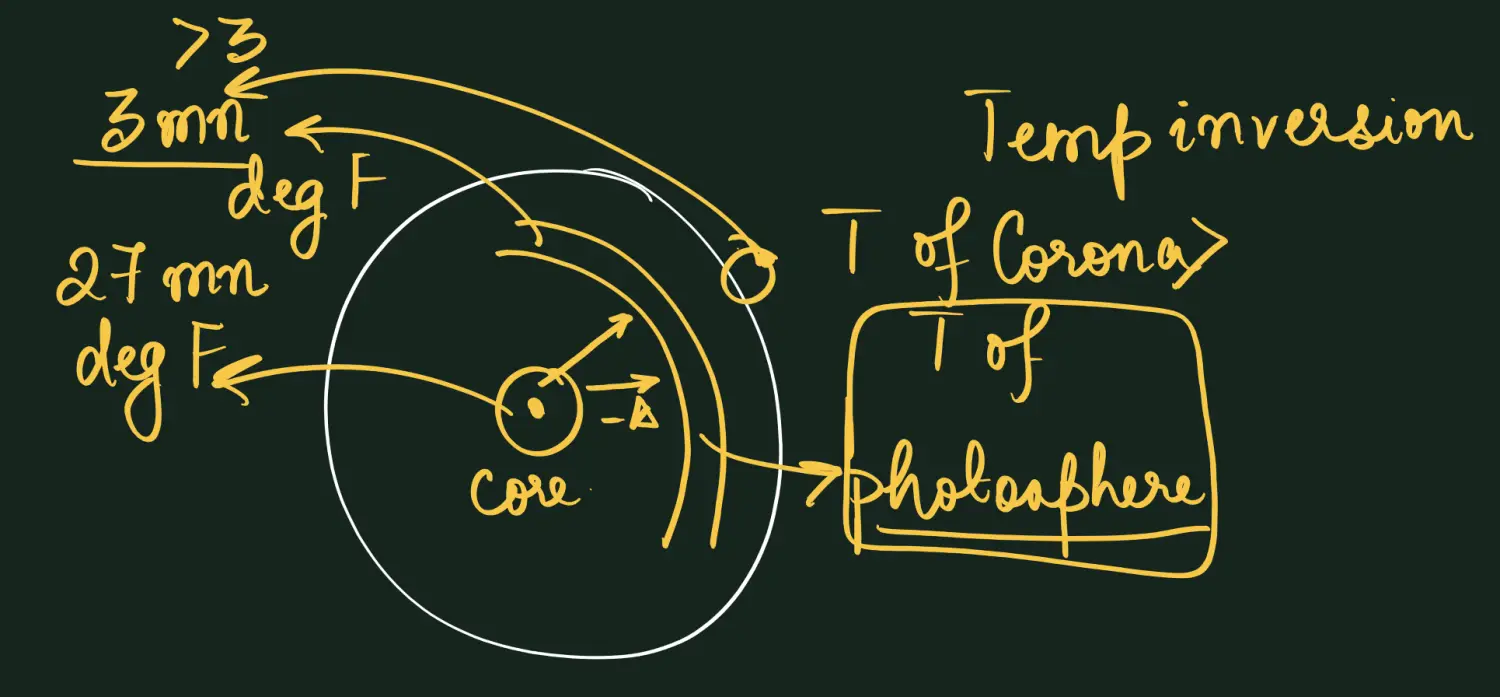 >3
3 mn
deg F
27 mn
deg F
core
Temp inversion
T of Corona >
T of
photosphere